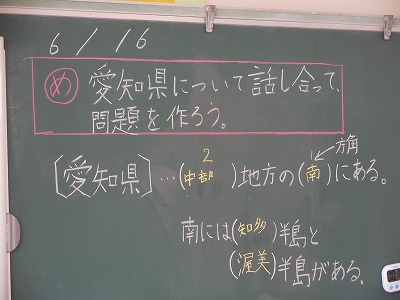 6/16
め 愛知県について話し合って、
問題を作ろう。
2
1 方角
[愛知県]…(中部)地方の(南)にある。
南には(知多)半島と
(渥美)半島がある。